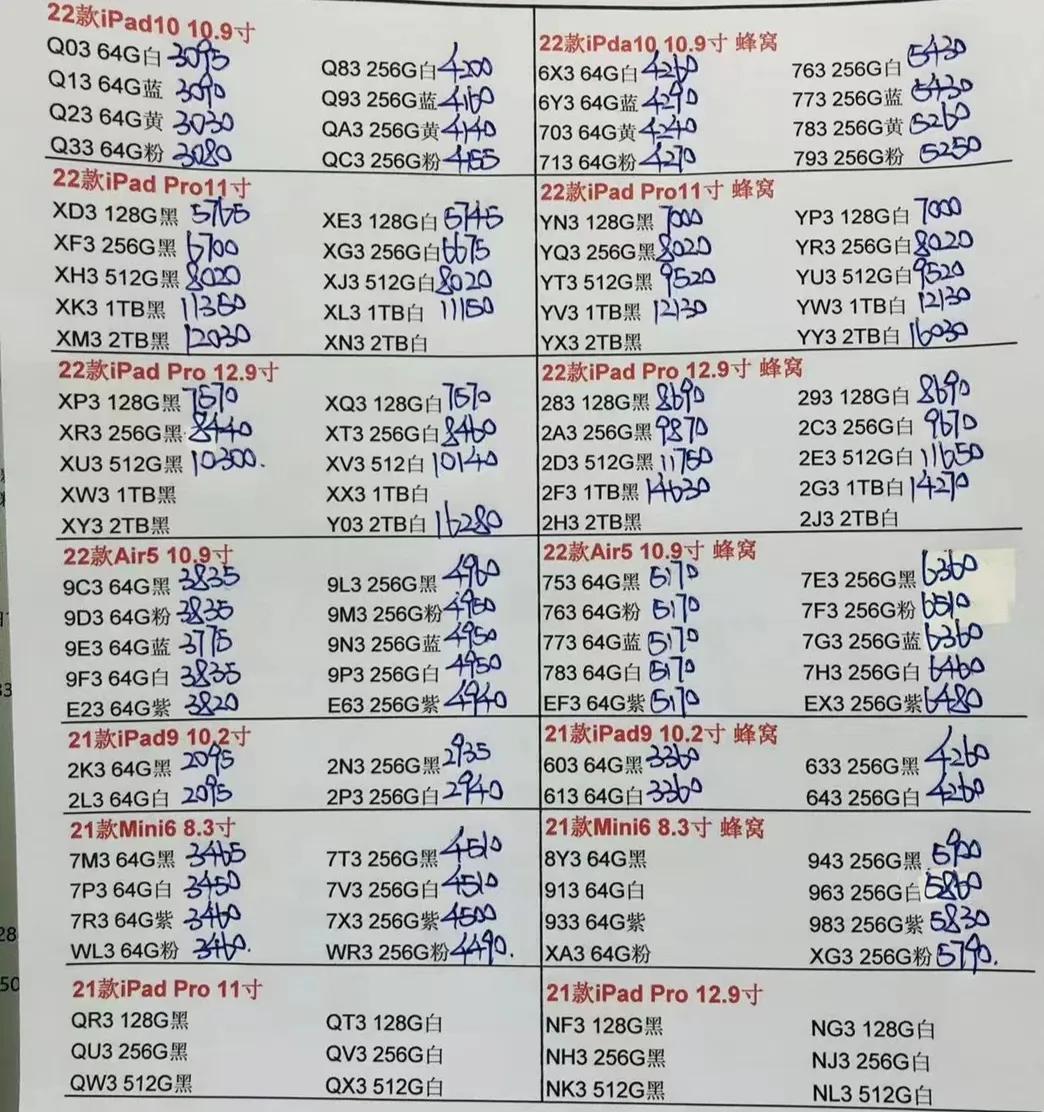 22款iPad10 10.9寸
Q03 64G白 3095 Q83 256G白 4200
Q13 64G蓝 3090 Q93 256G蓝 4160
Q23 64G黄 3030 QA3 256G黄 4140
Q33 64G粉 3080 QC3 256G粉 4155
22款iPda10 10.9寸 蜂窝
6X3 64G白 4260 763 256G白 5430
6Y3 64G蓝 4290 773 256G蓝 5430
703 64G黄 4240 783 256G黄 5260
713 64G粉 4270 793 256G粉 5250
22款iPad Pro11寸
XD3 128G黑 5765 XE3 128G白 5745
XF3 256G黑 6700 XG3 256G白 6675
XH3 512G黑 8020 XJ3 512G白 8020
XK3 1TB黑 11350 XL3 1TB白 11150
XM3 2TB黑 12030 XN3 2TB白
22款iPad Pro11寸 蜂窝
YN3 128G黑 7000 YP3 128G白 7000
YQ3 256G黑 8020 YR3 256G白 8020
YT3 512G黑 9520 YU3 512G白 9520
YV3 1TB黑 12130 YW3 1TB白 12130
YX3 2TB黑 YY3 2TB白 16030
22款iPad Pro 12.9寸
XP3 128G黑 7570 XQ3 128G白 7570
XR3 256G黑 8440 XT3 256G白 8460
XU3 512G黑 10300. XV3 512白 10140
XW3 1TB黑 XX3 1TB白
XY3 2TB黑 Y03 2TB白 16280
22款iPad Pro 12.9寸 蜂窝
283 128G黑 8690 293 128G白 8690
2A3 256G黑 9870 2C3 256G白 9670
2D3 512G黑 11750 2E3 512G白 11650
2F3 1TB黑 14630 2G3 1TB白 14270
2H3 2TB黑 2J3 2TB白
22款Air5 10.9寸
9C3 64G黑 3835 9L3 256G黑 4960
9D3 64G粉 3835 9M3 256G粉 4950
9E3 64G蓝 3775 9N3 256G蓝 4950
9F3 64G白 3835 9P3 256G白 4950
E23 64G紫 3820 E63 256G紫 4940
22款Air5 10.9寸 蜂窝
753 64G黑 5170 7E3 256G黑 6360
763 64G粉 5170 7F3 256G粉 6510
773 64G蓝 5170 7G3 256G蓝 6360
783 64G白 5170 7H3 256G白 6460
EF3 64G紫 5170 EX3 256G紫 6480
21款iPad9 10.2寸
2K3 64G黑 2095 2N3 256G黑 2935
2L3 64G白 2095 2P3 256G白 2940
21款iPad9 10.2寸 蜂窝
603 64G黑 3360 633 256G黑 4260
613 64G白 3360 643 256G白 4260
21款Mini6 8.3寸
7M3 64G黑 3465 7T3 256G黑 4510
7P3 64G白 3450 7V3 256G白 4510
7R3 64G紫 3460 7X3 256G紫 4500
WL3 64G粉 3460. WR3 256G粉 4490.
21款Mini6 8.3寸 蜂窝
8Y3 64G黑 943 256G黑 5900
913 64G白 963 256G白 5860
933 64G紫 983 256G紫 5830
XA3 64G粉 XG3 256G粉 5790.
21款iPad Pro 11寸
QR3 128G黑 QT3 128G白
QU3 256G黑 QV3 256G白
QW3 512G黑 QX3 512G白
21款iPad Pro 12.9寸
NF3 128G黑 NG3 128G白
NH3 256G黑 NJ3 256G白
NK3 512G黑 NL3 512G白